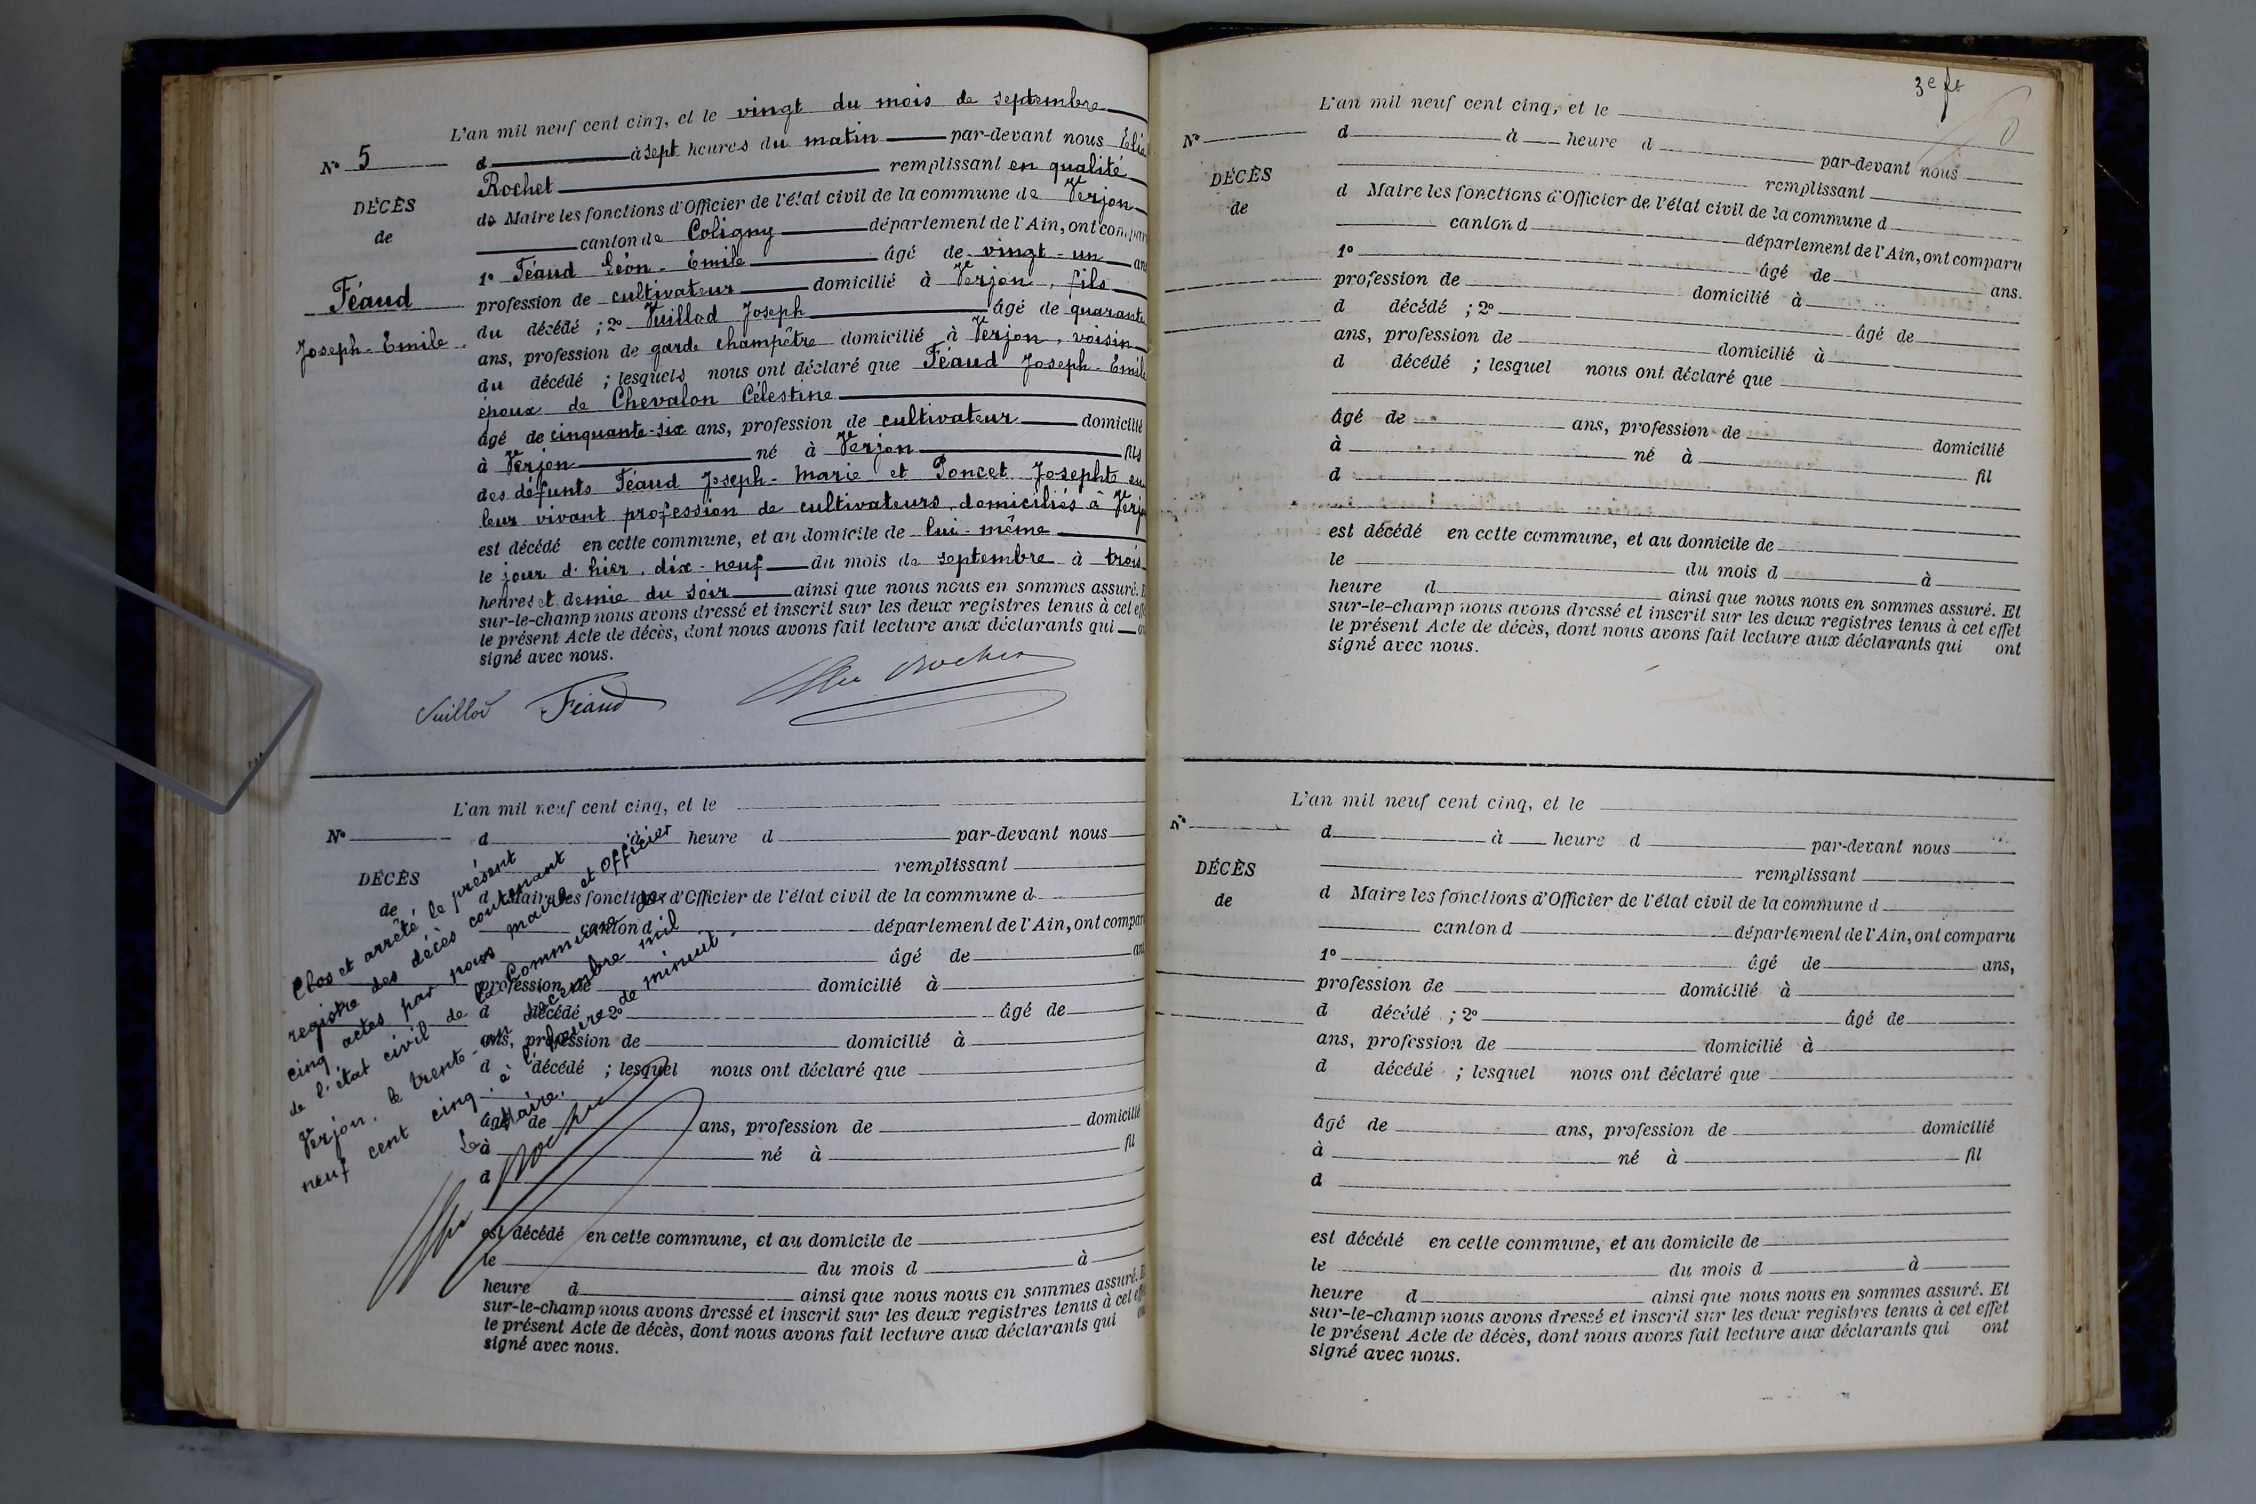 L'an mil neuf cent cinq, et le vingt du mois de septembre
N° 5
d à sept heures du matin par-devant nous Elie
Rochet remplissant en qualité
DÉCÈS
de Maire les fonctions d'Officier de l'état civil de la commune de Verjon
de
canton de Coligny département de l'Ain, ont compar
1° Féaud Léon-Emile âgé de vingt-un ans
Féaud
profession de cultivateur domicilié à Verjon, fils
Joseph-Emile.
du décédé ; 2° Vuillod Joseph âgé de quarante
ans, profession de garde champêtre domicilié à Verjon, voisin
du décédé ; lesquels nous ont déclaré que Féaud Joseph-Emile
époux de Chevalon Célestine
âgé de cinquante-six ans, profession de cultivateur domicilié
à Verjon né à Verjon fils
des défunts Féaud Joseph-Marie et Poncet Josephte en
leur vivant profession de cultivateurs domiciliés à Verjon
est décédé en cette commune, et au domicile de lui-même
le jour d'hier, dix-neuf du mois de septembre à trois
heures et demie du soir ainsi que nous nous en sommes assuré. E
sur-le-champ nous avons dressé et inscrit sur les deux registres tenus à cet eff
le présent Acte de décès, dont nous avons fait lecture aux déclarants qui on
signé avec nous.
Vuillod Féaud Elie Rochet
L'an mil neuf cent cinq, et le
N° d à heure d par-devant nous
remplissant
DÉCÈS
de
d Maire les fonctions d'Officier de l'état civil de la commune d
canton d département de l'Ain, ont compar
1° âgé de an
profession de domicilié à
d décédé ; 2° âgé de
ans, profession de domicilié à
d décédé ; lesquel nous ont déclaré que
âgé de ans, profession de domicilié
à né à fil
d
est décédé en cette commune, et au domicile de
le du mois d à
heure d ainsi que nous nous en sommes assuré. E
sur-le-champ nous avons dressé et inscrit sur les deux registres tenus à cet eff
le présent Acte de décès, dont nous avons fait lecture aux déclarants qui on
signé avec nous.
Clos et arrêté le présent
registre des décès contenant
cinq actes par nous maire et officier
de l'état civil de la Commune de
Verjon, le trente-un décembre mil
neuf cent cinq, à l'heure de minuit.
Le Maire,
Elie Rochet
3e ft
L'an mil neuf cent cinq, et le
N°
d à heure d par-devant nous
remplissant
DÉCÈS
de
d Maire les fonctions d'Officier de l'état civil de la commune d
canton d département de l'Ain, ont comparu
1° âgé de ans.
profession de domicilié à
d décédé ; 2° âgé de
ans, profession de domicilié à
d décédé ; lesquel nous ont déclaré que
âgé de ans, profession de domicilié
à né à fil
d
est décédé en cette commune, et au domicile de
le du mois d à
heure d ainsi que nous nous en sommes assuré. Et
sur-le-champ nous avons dressé et inscrit sur les deux registres tenus à cet effet
le présent Acte de décès, dont nous avons fait lecture aux déclarants qui ont
signé avec nous.
L'an mil neuf cent cinq, et le
N°
d à heure d par-devant nous
remplissant
DÉCÈS
de
d Maire les fonctions d'Officier de l'état civil de la commune d
canton d département de l'Ain, ont comparu
1° âgé de ans,
profession de domicilié à
d décédé ; 2° âgé de
ans, profession de domicilié à
d décédé ; lesquel nous ont déclaré que
âgé de ans, profession de domicilié
à né à fil
d
est décédé en cette commune, et au domicile de
le du mois d à
heure d ainsi que nous nous en sommes assuré. Et
sur-le-champ nous avons dressé et inscrit sur les deux registres tenus à cet effet
le présent Acte de décès, dont nous avons fait lecture aux déclarants qui ont
signé avec nous.